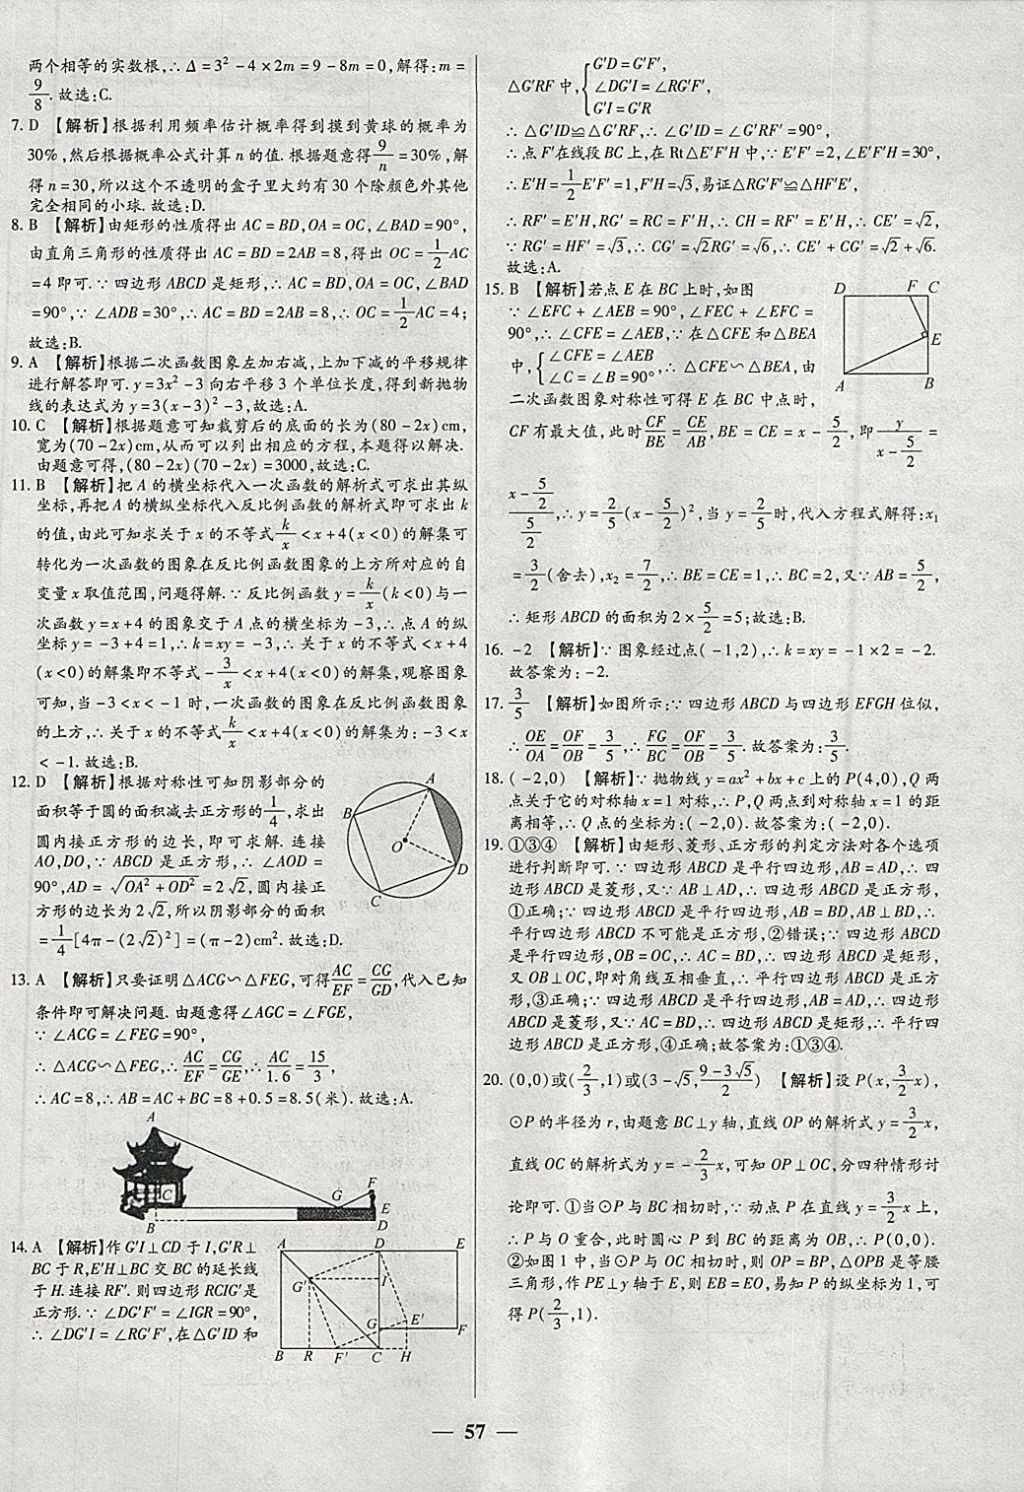 两个相等的实数根,∴Δ=3²-4×2m=9-8m=0,解得:m=
9/8.故选:C.
7. D 【解析】根据利用频率估计概率得到摸到黄球的概率为
30%,然后根据概率公式计算 n 的值.根据题意得9/n=30%,解
得 n=30,所以这个不透明的盒子里大约有 30 个除颜色外其他
完全相同的小球.故选:D.
8. B 【解析】由矩形的性质得出 AC=BD,OA=OC,∠BAD=90°,
由直角三角形的性质得出 AC=BD=2AB=8,得出 OC=1/2AC
=4 即可.∵四边形 ABCD 是矩形,∴AC=BD,OA=OC,∠BAD
=90°,∵∠ADB=30°,∴AC=BD=2AB=8,∴OC=1/2AC=4;
故选:B.
9. A 【解析】根据二次函数图象左加右减,上加下减的平移规律
进行解答即可.y=3x²-3 向右平移 3 个单位长度,得到新抛物
线的表达式为 y=3(x-3)²-3,故选:A.
10. C 【解析】根据题意可知裁剪后的底面的长为(80-2x)cm,
宽为(70-2x)cm,从而可以列出相应的方程,本题得以解决.
由题意可得,(80-2x)(70-2x)=3000,故选:C.
11. B 【解析】把 A 的横坐标代入一次函数的解析式可求出其纵
坐标,再把 A 的横纵坐标代入反比例函数的解析式即可求出 k
的值,由此可知求关于 x 的不等式k/x<x+4(x<0)的解集可
转化为一次函数的图象在反比例函数图象的上方所对应的自
变量 x 取值范围,问题得解.∵反比例函数 y=k/x(k<0)与一
次函数 y=x+4 的图象交于 A 点的横坐标为-3,∴点 A 的纵
坐标 y=-3+4=1,∴k=xy=-3,∴关于 x 的不等式<x+4
(x<0)的解集即不等式-3/x<x+4(x<0)的解集,观察图象可
知,当-3<x<-1 时,一次函数的图象在反比例函数图象
的上方,∴关于 x 的不等式k/x<x+4(x<0)的解集为:-3<x
<-1.故选:B.
12. D 【解析】根据对称性可知阴影部分的
面积等于圆的面积减去正方形的1/4,求出
圆内接正方形的边长,即可求解.连接
AO,DO,∵ABCD 是正方形,∴∠AOD=
90°,AD=√(OA²+OD²)=2√2,圆内接正
方形的边长为 2√2,所以阴影部分的面积
=1/4[4π-(2√2)²]=(π-2)cm².故选:D.
A
B
O
D
C
13. A 【解析】只要证明△ACG∽△FEG,可得AC/EF=CG/GD,代入已知
条件即可解决问题.由题意得∠AGC=∠FGE,
∵∠ACG=∠FEG=90°,
∴△ACG∽△FEG,∴AC/EF=CG/GE,∴AC/1.6=15/3,
∴AC=8,∴AB=AC+BC=8+0.5=8.5(米).故选:A.
A
C
B
G
F
E
D
14. A 【解析】作 G′I⊥CD 于 I,G′R⊥
BC 于 R,E′H⊥BC 交 BC 的延长线
于 H.连接 RF′.则四边形 RCIG′是
正方形.∵∠DG′F′=∠IGR=90°,
∴∠DG′I=∠RG′F′,在△G′ID 和
A D E
G′ I
G E′ F
B R F′ C H
△G′RF 中,{G′D=G′F′,
∠DG′I=∠RG′F′,
G′I=G′R
∴△G′ID≌△G′RF,∴∠G′ID=∠G′RF′=90°,
∴点 F′在线段 BC 上,在 Rt△E′F′H 中,∵E′F′=2,∠E′F′H=30°,
∴E′H=1/2E′F′=1,F′H=√3,易证△RG′F′≌△HF′E′,
∴RF′=E′H,RG′=RC=F′H,∴CH=RF′=E′H,∴CE′=√2,
∵RG′=HF′=√3,∴CG′=√2RG′=√6,∴CE′+CG′=√2+√6.
故选:A.
15. B 【解析】若点 E 在 BC 上时,如图
∵∠EFC+∠AEB=90°,∠FEC+∠EFC=
90°,∴∠CFE=∠AEB,∵在△CFE 和△BEA
中,{∠CFE=∠AEB
∠C=∠B=90°,∴△CFE∽△BEA,由
二次函数图象对称性可得 E 在 BC 中点时,
D F C
E
A B
CF 有最大值,此时CF/BE=CE/AB,BE=CE=x-5/2,即y/(x-5/2)=
(x-5/2)/(5/2),∴y=2/5(x-5/2)²,当 y=2/5时,代入方程式解得:x₁
=3/2(舍去),x₂=7/2,∴BE=CE=1,∴BC=2,又∵AB=5/2,
∴矩形 ABCD 的面积为 2×5/2=5;故选:B.
16. -2 【解析】∵图象经过点(-1,2),∴k=xy=-1×2=-2.
故答案为:-2.
17. 3/5 【解析】如图所示:∵四边形 ABCD 与四边形 EFGH 位似,
∴OE/OA=OF/OB=3/5,∴FG/BC=OF/OB=3/5.故答案为:3/5.
18. (-2,0) 【解析】∵抛物线 y=ax²+bx+c 上的 P(4,0),Q 两
点关于它的对称轴 x=1 对称,∴P,Q 两点到对称轴 x=1 的距
离相等,∴Q 点的坐标为:(-2,0).故答案为:(-2,0).
19. ①③④ 【解析】由矩形、菱形、正方形的判定方法对各个选项
进行判断即可.∵四边形 ABCD 是平行四边形,AB=AD,∴四
边形 ABCD 是菱形,又∵AB⊥AD,∴四边形 ABCD 是正方形,
①正确;∵四边形 ABCD 是平行四边形,AB=BD,AB⊥BD,∴
平行四边形 ABCD 不可能是正方形,②错误;∵四边形 ABCD
是平行四边形,OB=OC,∴AC=BD,∴四边形 ABCD 是矩形,
又 OB⊥OC,即对角线互相垂直,∴平行四边形 ABCD 是正方
形,③正确;∵四边形 ABCD 是平行四边形,AB=AD,∴四边形
ABCD 是菱形,又∵AC=BD,∴四边形 ABCD 是矩形,∴平行四
边形 ABCD 是正方形,④正确;故答案为:①③④.
20. (0,0)或(2/3,1)或(3-√5,(9-3√5)/2) 【解析】设 P(x,3/2x),
⊙P 的半径为 r,由题意 BC⊥y 轴,直线 OP 的解析式 y=3/2x,
直线 OC 的解析式为 y=-2/3x,可知 OP⊥OC,分四种情形讨
论即可.①当⊙P 与 BC 相切时,∵动点 P 在直线 y=3/2x 上,
∴P 与 O 重合,此时圆心 P 到 BC 的距离为 OB,∴P(0,0).
②如图 1 中,当⊙P 与 OC 相切时,则 OP=BP,△OPB 是等腰
三角形,作 PE⊥y 轴于 E,则 EB=EO,易知 P 的纵坐标为 1,可
得 P(2/3,1).
— 57 —